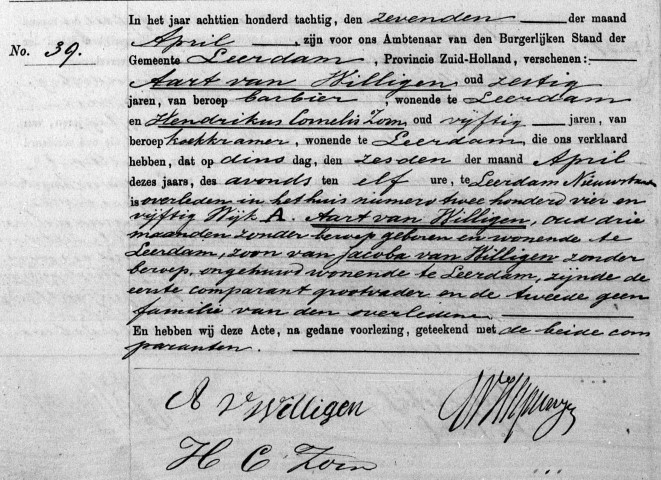 In het jaar achttien honderd tachtig, den zevenden der maand
No. 39. April, zijn voor ons Ambtenaar van den Burgerlijken Stand der
Gemeente Leerdam, Provincie Zuid-Holland, verschenen:
Aart van Willigen oud zestig
jaren, van beroep barbier, wonende te Leerdam
en Hendrikus Cornelis Zorn oud vijftig jaren, van
beroep koekkramer, wonende te Leerdam, die ons verklaard
hebben, dat op dins dag, den zesden der maand April
dezes jaars, des avonds ten elf ure, te Leerdam
is overleden in het huis numero twee honderd vier en
vijftig Wijk A. Aart van Willigen, oud drie
maanden zonder beroep geboren en wonende te
Leerdam, zoon van Jacoba van Willigen zonder
beroep, ongehuwd wonende te Leerdam, zijnde de
eerste comparant grootvader en de tweede geen
familie van den overledene
En hebben wij deze Acte, na gedane voorlezing, geteekend met de beide com
paranten.
A v Willigen
H C Zorn